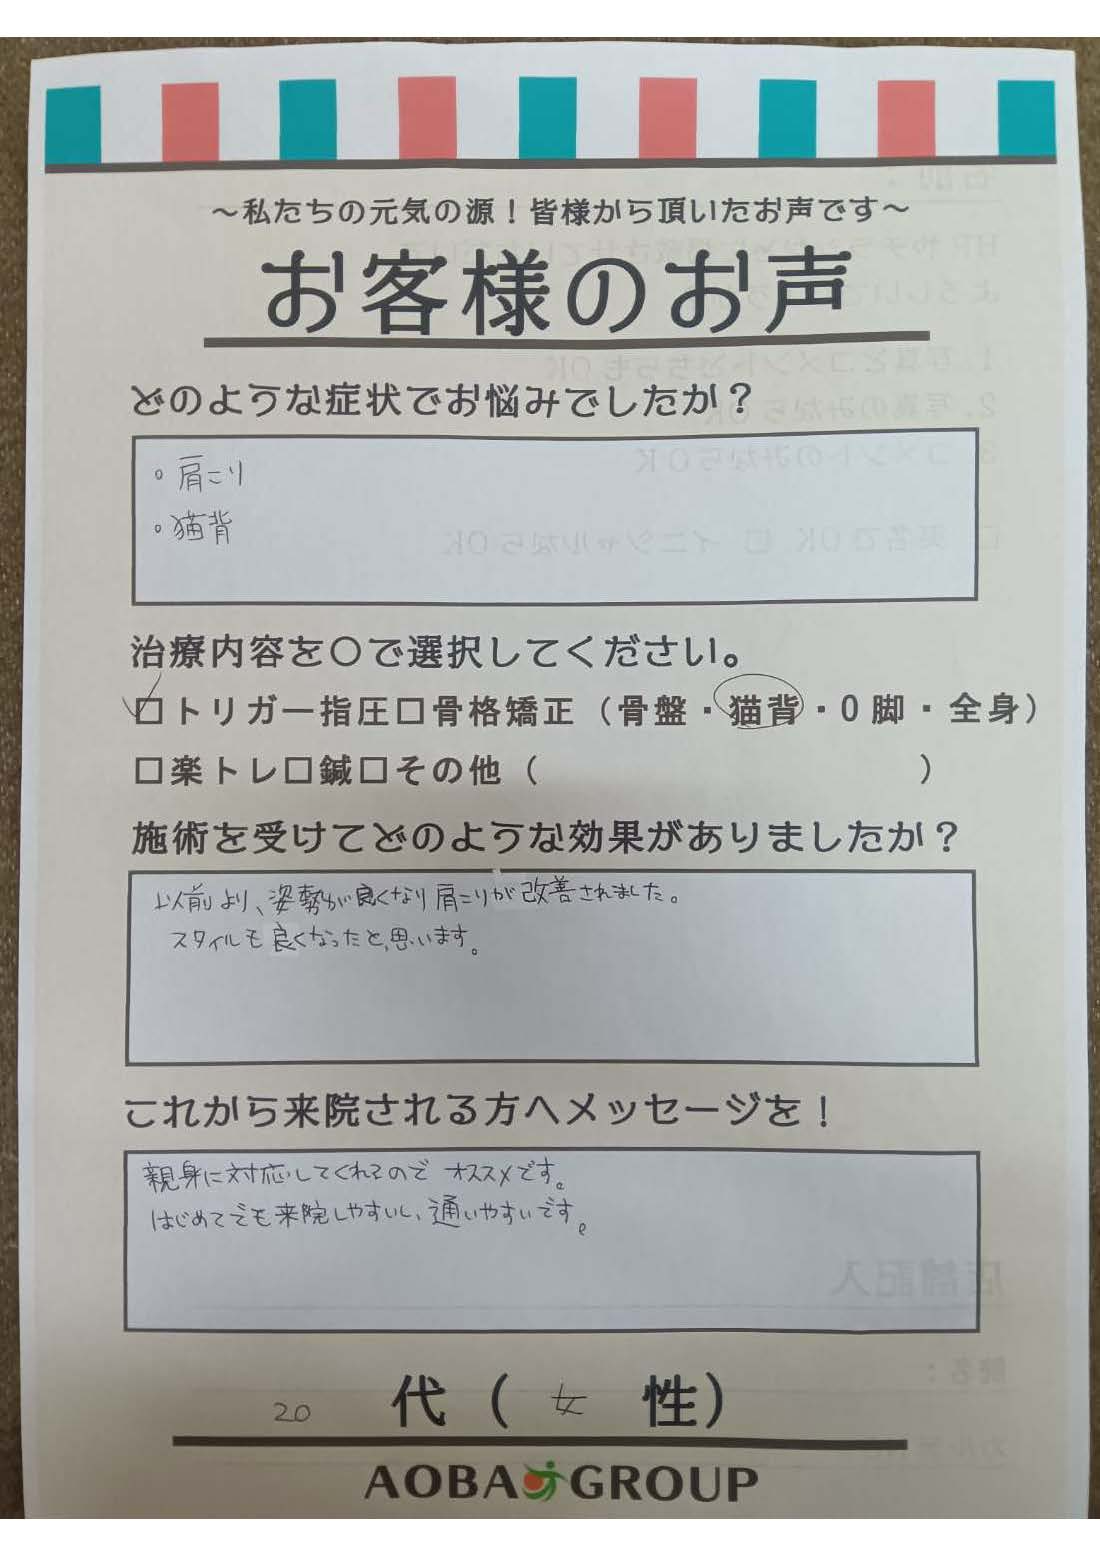 ～私たちの元気の源！皆様から頂いたお声です～
お客様のお声
どのような症状でお悩みでしたか？
。肩こり
。猫背
治療内容を〇で選択してください。
□トリガー指圧□骨格矯正（骨盤・猫背・O脚・全身）
□楽トレ□鍼□その他（　　　　　　　　　　　）
施術を受けてどのような効果がありましたか？
以前より、姿勢が良くなり肩こりが改善されました。
スタイルも良くなったと、思います。
これから来院される方へメッセージを！
親身に対応してくれるので オススメです。
はじめてでも来院しやすいし、通いやすいです。
20 代（ 女 性）
AOBA GROUP